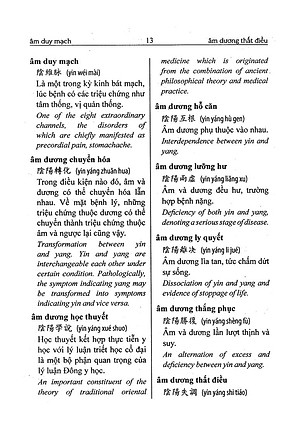 âm duy mạch
13
âm dương thất điều
âm duy mạch
陰維脉 (yīn wéi mài)
Là một trong kỳ kinh bát mạch,
lúc bệnh có các triệu chứng như
tâm thống, vị quản thống.
One of the eight extraordinary
channels, the disorders of
which are chiefly manifested as
precordial pain, stomachache.
âm dương chuyển hóa
陰陽轉化 (yīn yáng zhuǎn hua)
Trong điều kiện nào đó, âm và
dương có thể chuyển hóa lẫn
nhau. Về mặt bệnh lý, những
triệu chứng thuộc dương có thể
chuyển thành triệu chứng thuộc
âm và ngược lại cũng vậy.
Transformation between yin
and yang. Yin and yang are
interchangeable each other under
certain condition. Pathologically,
the symptom indicating yang may
be transformed into symptoms
indicating yin and vice versa.
âm dương học thuyết
陰陽學說 (yīn yáng xué shuo)
Học thuyết kết hợp thực tiễn y
học với lý luận triết học cổ đại
là một bộ phận quan trọng của
lý luận Đông y học.
An important constituent of the
theory of traditional oriental
medicine which is originated
from the combination of ancient
philosophical theory and medical
practice.
âm dương hỗ căn
陰陽互根 (yīn yáng hù gen)
Âm dương phụ thuộc vào nhau.
Interdependence between yin and
yang.
âm dương lưỡng hư
陰陽兩虛 (yīn yáng liǎng xu)
Âm và dương đều hư, trường
hợp bệnh nặng.
Deficiency of both yin and yang,
denoting a serious stage of disease.
âm dương ly quyết
陰陽離決 (yīn yáng lí jué)
Âm dương lìa tan, tức chấm dứt
sự sống.
Dissociation of yin and yang and
evidence of stoppage of life.
âm dương thắng phục
陰陽勝復 (yīn yáng shèng fù)
Âm và dương lần lượt thịnh và
suy.
An alternation of excess and
deficiency between yin and yang.
âm dương thất điều
陰陽失調 (yīn yáng shi tiáo)